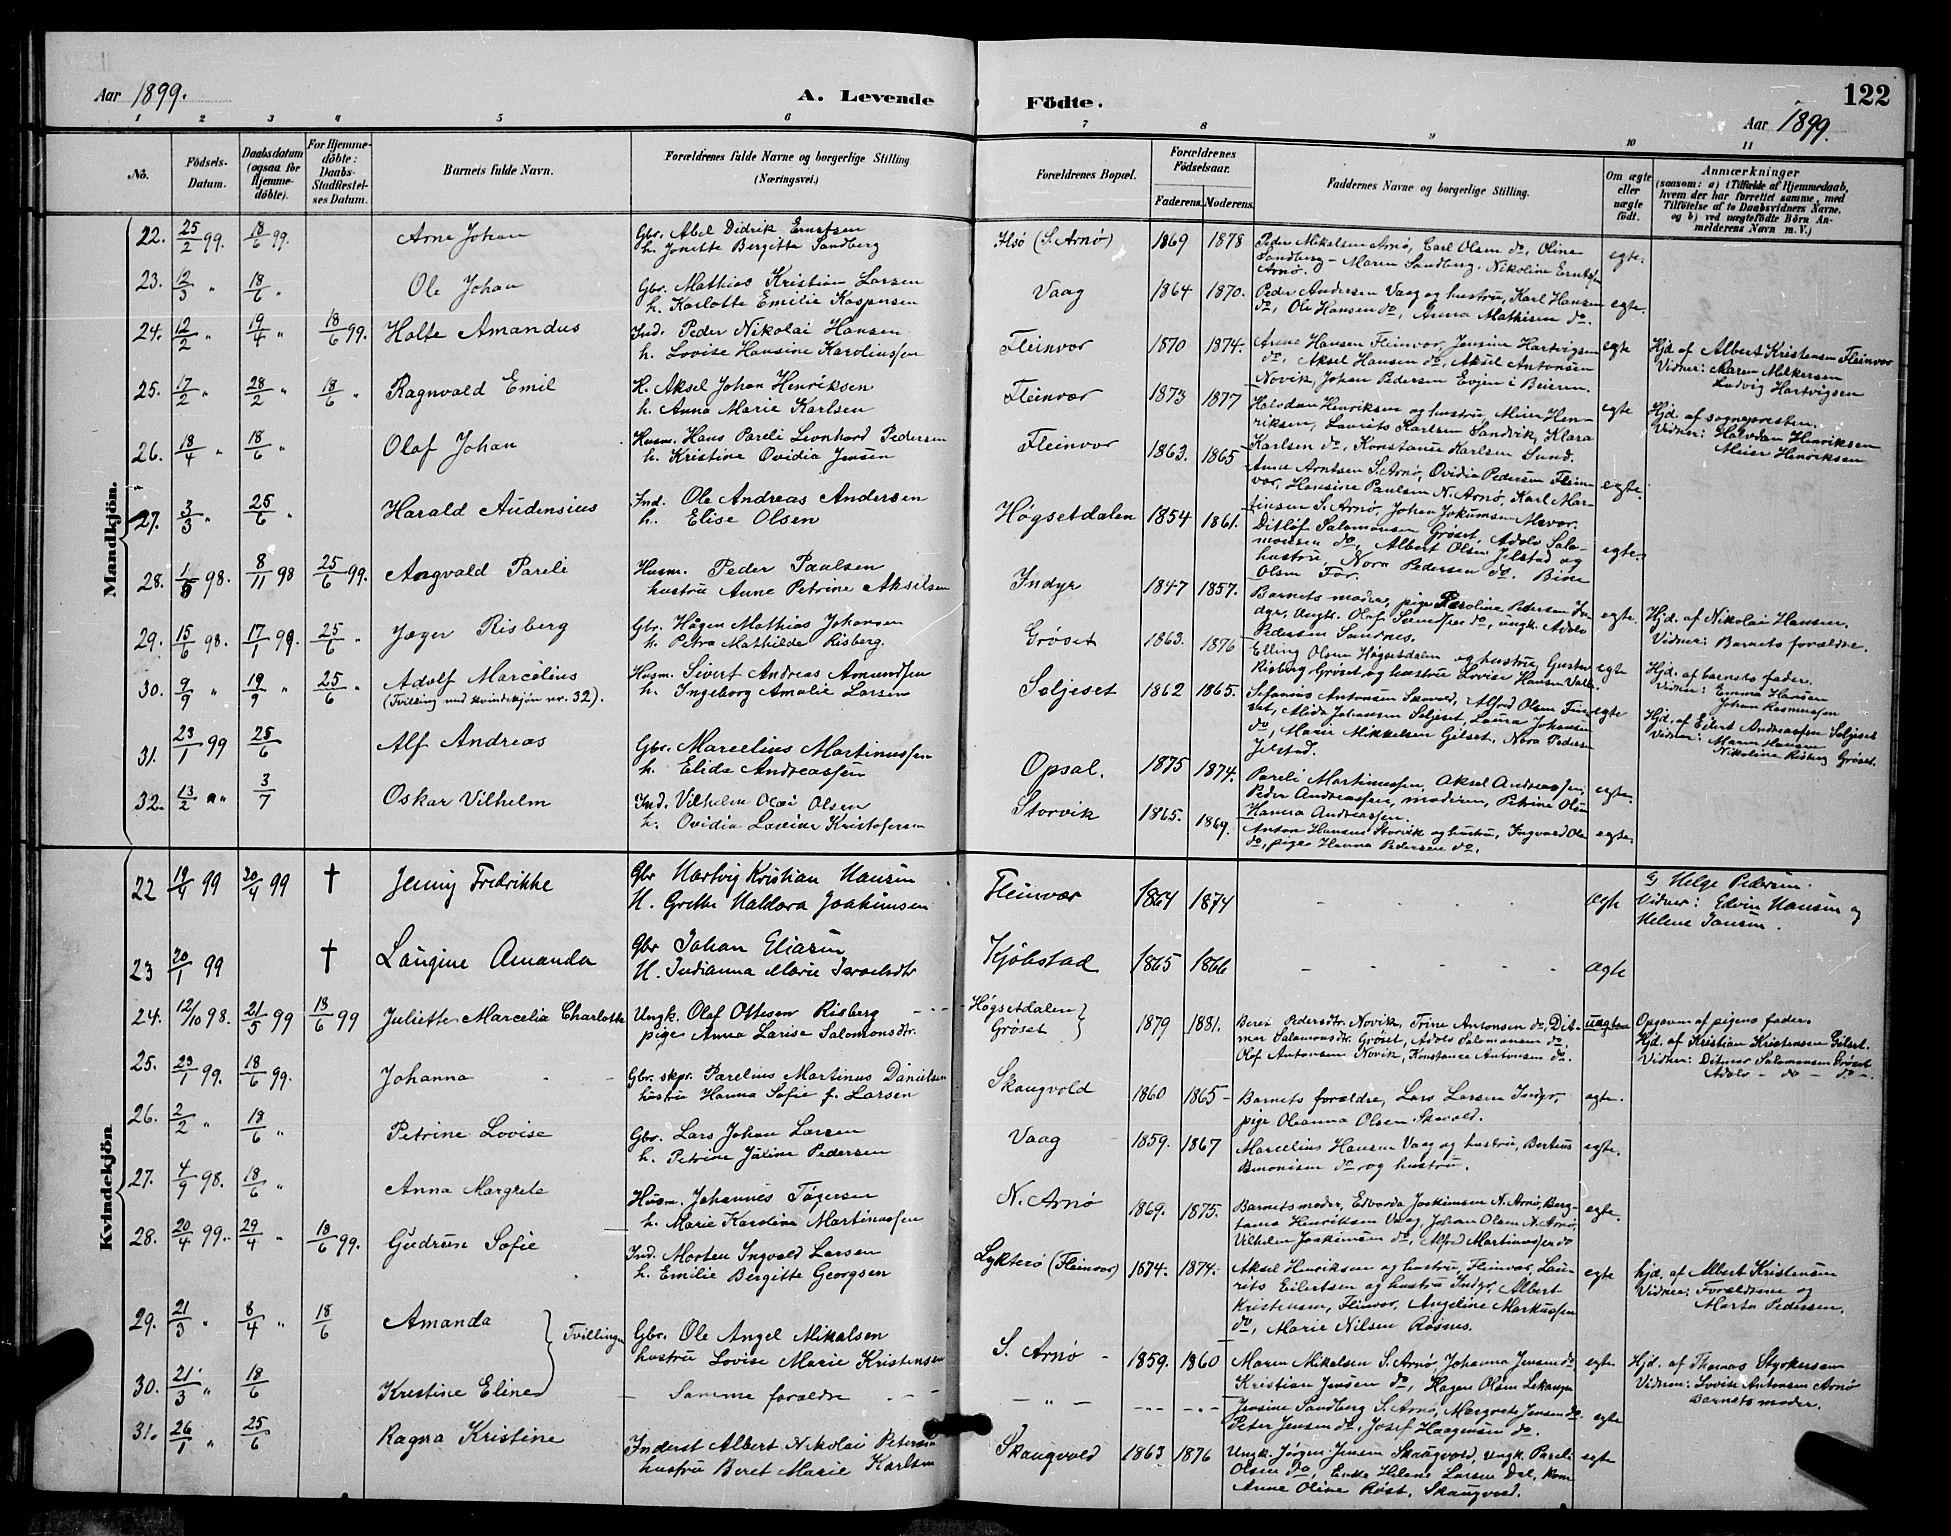 Aar 1899.
A. Levende Födte.
122
Aar 1899.
1 2 3 4 5 6 7 8 9 10 11
No.
Födsels-Datum.
Daabsdatum (ogsaa for Hjemme-döbte).
For Hjemme-döbte: Daabs-Stadfæstel-ses Datum.
Barnets fulde Navn.
Forældrenes fulde Navne og borgerlige Stilling. (Næringsvei.)
Forældrenes Bopæl.
Forældrenes Födselsaar.
Faderens. Moderens.
Faddernes Navne og borgerlige Stilling.
Om ægte eller uægte födt.
Anmærkninger
(saasom: a) i Tilfælde af Hjemmedaab, hvem der har forrettet samme, med Tilföielse af to Daabsvidners Navne, og b) ved uægtefödte Börn An-melderens Navn m. V.)
Mandkjön.
22. 25/2 99. 18/6 99. Arne Johan
Gbr. Abel Didrik Erntsen
h. Jonette Bergitte Sandberg
(S. Arnø) 1869 1878
Peder Mikalsen Arnø, Carl Olsen do, Oline
Sandberg - Maren Sandberg. Nikoline Erntsen
Arnø.
egte.
23. 12/3 " 18/6 " Ole Johan
Gbr. Mathias Kristian Larsen
h. Karlotte Emilie Kaspersen
Vaag 1864 1870.
Peder Andersen Vaag og hustru, Karl Hansen
do, Ole Hansen do, Anna Mathisen do.
egte.
24. 12/2 " 19/4 " 18/6 99. Halte Amandus
Ind. Peder Nikolai Hansen
h. Lovise Hansine Karoliussen
Fleinvær 1870 1874.
Anna Hansen Fleinvær, Jensine Hartvigsen
do, Aksel Hansen do, Aksel Antonsen
Novik, Johan Pedersen Evjen i Beieren.
egte
Hjd. af Albert Kristensen Fleinvær
Vidner: Maren Mikersen
Ludvig Hartvigsen
25. 17/2 " 28/2 " 18/6 " Ragnvald Emil
H. Aksel Johan Henriksen
h. Anna Marie Karlsen
Fleinvær 1873 1877
Halvdan Henriksen og hustru, Meier Hen-
riksen, Laurits Karlsen Sandvik, Klara
Karlsen do, Konstanse Karlsen Sund.
egte
Hjd. af sognepresten.
Vidner: Halvdan Henriksen
Meier Henriksen
26. 18/4 " 18/6 " Olaf Johan
Husm. Hans Pareli Leonhard Pedersen
h. Kristine Ovidia Jensen
Fleinvær 1863. 1865
Anne Arntsen S. Arnø, Ovidia Pedersen Flein-
vær, Hansine Paulsen N. Arnø, Karl Mar-
tinsen S. Arnø, Johan Jokumsen
egte.
27. 3/3 " 25/6 " Harald Audensius
Ind. Ole Andreas Andersen
h. Elise Olsen
Høgsetdalen 1854 1861.
Ditlöf Salamonsen Grøset, Adolv Salo-
monsen do, Albert Olsen Jelstad og
hustru, Nora Pedersen do.
egte.
28. 1/5 98. 8/11 98 25/6 99. Angvald Pareli
Husm. Peder Paulsen
hustru Anne Petrine Akselsen
Indyr 1847 1857.
Barnets moder, pige Karoline Pedersen In-
dyr, ungk. Olaf do, ungk. Adolv
Pedersen Sandnes.
egte.
Hjd. af Nikolai Hansen.
Vidner: Barnets forældre.
29. 15/6 98. 17/1 99. 25/6 " Jæger Risberg
Gbr. Hågen Mathias Johansen
h. Petra Mathilde Risberg.
Grøset 1863. 1876
Elling Olsen Høgsetdalen og hustru, Gustav
Risberg Grøset og hustru Lovise Hansen
egte
Hjd. af barnets fader.
Vidner: Emma Hansen
Johan Rasmussen
30. 9/9 " 19/9 " 25/6 " Adolf Marcelius
(Tvilling med kvindekjøn nr. 32).
Husm. Sivert Andreas Amundsen
h. Ingeborg Amalie Larsen
Soljeset 1862 1865.
Antonsen Skavold, Alfred Olsen
Alida Johansen Soljeset, Laura Johansen
do, Marie Mikkelsen Gilset, Nora Pedersen
Jelstad.
egte
Hjd. af Eilert Andreassen Soljeset
Vidner: Maren Hansen
Nikoline Risberg Grøset.
31. 23/1 99 25/6 Alf Andreas
Gbr. Marcelius Martinussen
h. Elida Andreassen
Opsal. 1875 1874.
Pareli Martinussen, Aksel Andreassen,
Peder Andreassen, moderen, Petrine Olsen
Hanna Andreassen.
egte.
32. 13/2 " 3/7 Oskar Vilhelm
Ind. Vilhelm Olai Olsen
h. Ovidia Lavine Kristofersen
Storvik 1865. 1869.
Anton Hansen Storvik og hustru, Ingvard Ole
do, pige Hanna Pedersen do.
egte.
Kvindekjön
22 19/4 99 20/4 99 † Jenny Fredrikke
Gbr Hartvig Kristian Hansen
H. Grethe Haldora Joakimsen
Fleinvær 1864 1874
- - - - -
ægte
Helge Pedersen.
Vidner: Edvin Hansen og
Helene Jansen.
23 20/1 99 † Laugine Amanda
Gbr Johan Eliasen
H. Indianna Marie Israelsdtr
Kjøbstad 1865 1866
- - - - -
ægte
24. 12/10 98. 21/5 99 18/6 99 Juliette Marcelia Charlotte
Ungk. Olaf Ottesen Risberg
pige Anna Larise Salomonsdtr.
Høgsetdalen
Grøset
1879 1881.
Beret Pedersdtr. Novik, Trine Antonsen do, Dit-
mar Salamonsdtr. Grøset, Adolv Salamonsen do.
Olaf Antonsen Novik, Konstance Antonsen do.
uægte
Opgaven af pigens fader.
Hjd. af Kristian Kristensen Gilset.
Vidner: Ditmar Salamonsen Grøset
Adolv - do - do -
25. 23/1 99. 18/6 99. Johanna
Gbr. skpr. Parelius Martinus Danielsen
hustru Hanna Sofie f. Larsen
Skaugvold 1860 1865 -
Barnets forældre, Lars Larsen Indyr,
pige Oleanna Olsen Skavold.
egte.
26. 2/2 " 18/6 " Petrine Lovise
Gbr. Lars Johan Larsen
h. Petrine Juline Pedersen
Vaag 1859. 1867
Marcelius Hansen Vaag og hustru, Bertius
Benonisen do og hustru.
egte.
27. 4/9 98. 18/6 " Anna Margrete
Husm. Johannes Tøgersen
h. Marie Karoline Martinussen
N. Arnø 1869. 1875.
Barnets moder, Edvarda Joakimsen N. Arnø, Berg-
tana Henriksen Vaag, Johan Olsen N. Arnø,
Vilhelm Joakimsen do, Alfred Martinussen do
egte.
28. 20/4 99. 29/4 " 18/6 99. Gudrun Sofie
Ind. Morten Ingvald Larsen
h. Emilie Bergitte Georgsen
Lykterø (Fleinvær) 1874. 1874.
Aksel Henriksen og hustru, Fleinvær, Lau-
rits Eilertsen og hustru Indyr, Albert
Kristensen, Fleinvær, Angeline Markussen
do, Marie Nilsen Røsnes.
egte
hjd. af Albert Kristensen
Vidner: Forældrene og
Marta Pedersen.
29. 21/3 " 8/4 " 18/6 Amanda
Tvillinger
Gbr. Ole Angel Mikalsen
hustru Lovise Marie Kristensen
S. Arnø - 1859. 1860
Maren Mikelsen S. Arnø, Johanna Jensen do
Kristian Jensen do, Hagen Olsen Lekanger
egte.
Hjd. af Thomas Styrkersen
Vidner: Lovise Antonsen Arnø
Barnets moder.
30. 21/3 " 18/6 Kristine Eline
- Samme forældre - - -
- " - - " - - " -
Jensine Sandberg S. Arnø, Margrete Jensen do
Peter Jensen do, Josef Haagensen do.
egte
31. 26/1 " 25/6 Ragna Kristine
Inderst Albert Nikolai Petersen
hustru Beret Marie Karlsen
Skaugvold 1863 1876
Ungk. Jørgen Jensen Skaugvold, ungk. Pareli
Olsen do, Enke Helene Larsen Dal, kone
Anne Oline Røst, Skaugvold.
egte